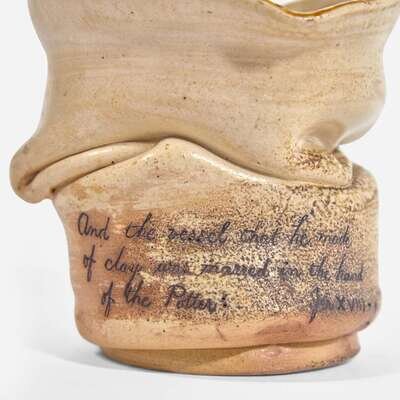 And the vessel that he made
of clay was marred in the hand
of the Potter:
Jer XVIII.